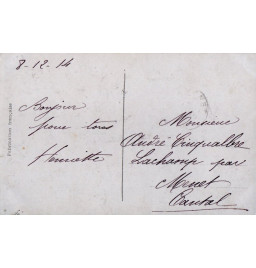 8-12-14
Bonjour
pour tous
Henriette
Monsieur
André Cinqualbre
Lachamp par
Menet
Cantal